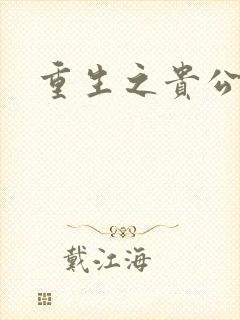 重生之貴公
戴江海